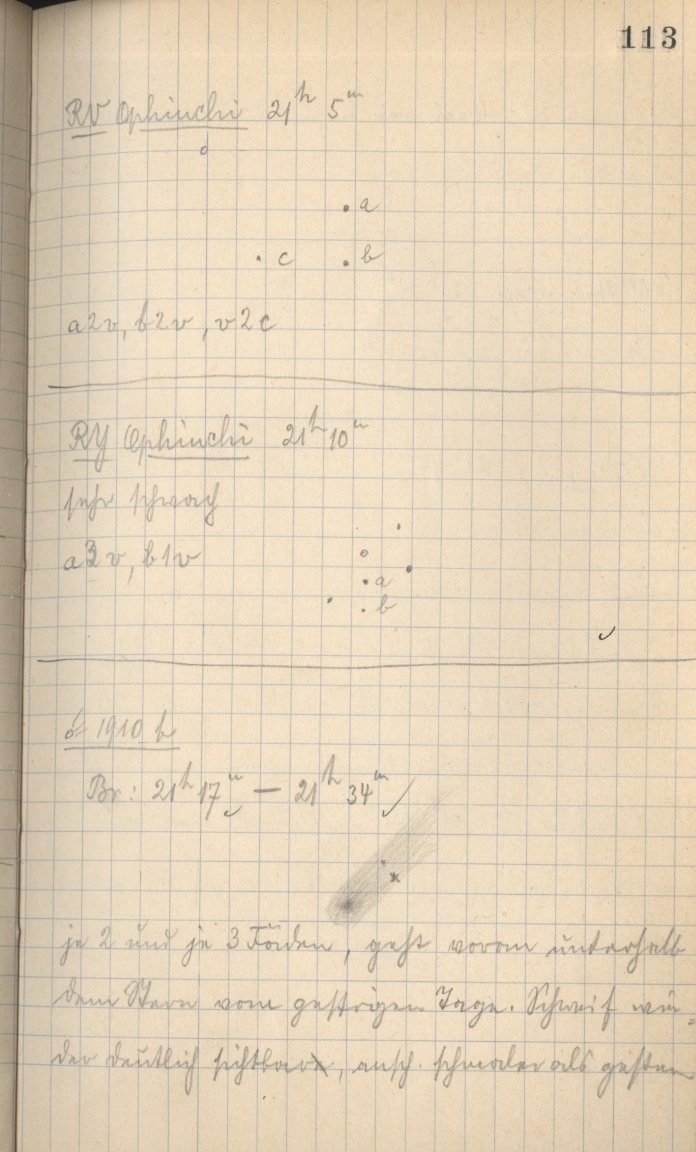 113
RV Ophiuchi 21h 5m
a
c b
a2v, b2v, v2c
RY Ophiuchi 21h 10m
sehr schwach
a3v, b1v
a
b
☄ 1910 b
Br: 21h 17m — 21h 34m
je 2 und je 3 Fäden, geht voran unterhalb
dem Stern vom gestrigen Tage. Schweif wie-
der deutlich sichtbar, ansch. schmaler als gestern